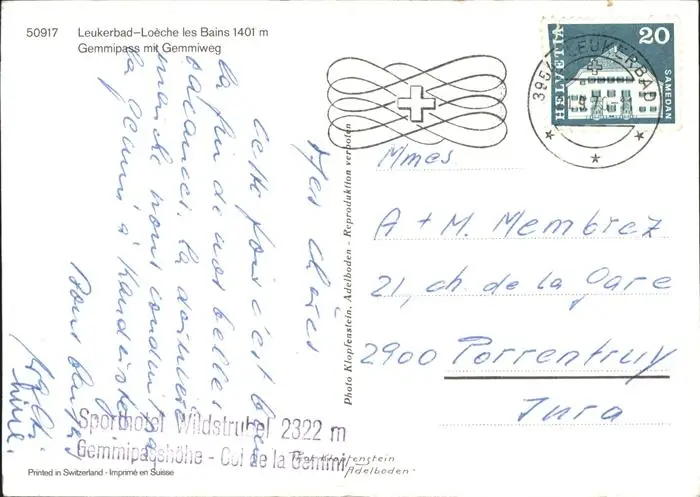 50917 Leukerbad–Loèche les Bains 1401 m
Gemmipass mit Gemmiweg
HELVETIA
20
SAMEDAN
3954 LEUKERBAD
Mes chères
Cette fois c'est bien
la fin de nos belles
vacances. La dernière
marche nous conduit par
la Gemmi à Kandersteg
Bons baisers
Mmes
A + M. Membrez
21, ch. de la Gare
2900 Porrentruy
Jura
Photo Klopfenstein, Adelboden - Reproduktion verboten
Sporthotel Wildstrubel 2322 m
Gemmipasshöhe - Col de la Gemmi
Photo Klopfenstein
Adelboden
Printed in Switzerland - Imprimé en Suisse